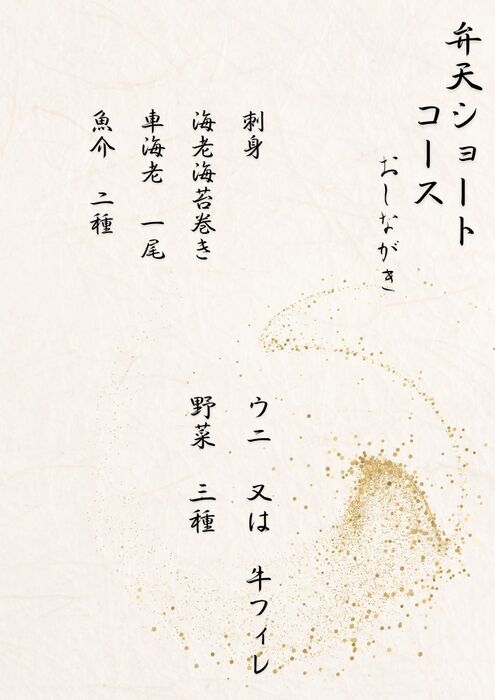 弁天ショート
コース
おしながき
刺身
海老海苔巻き
車海老 一尾
魚介 二種
ウニ 又は 牛フィレ
野菜 三種